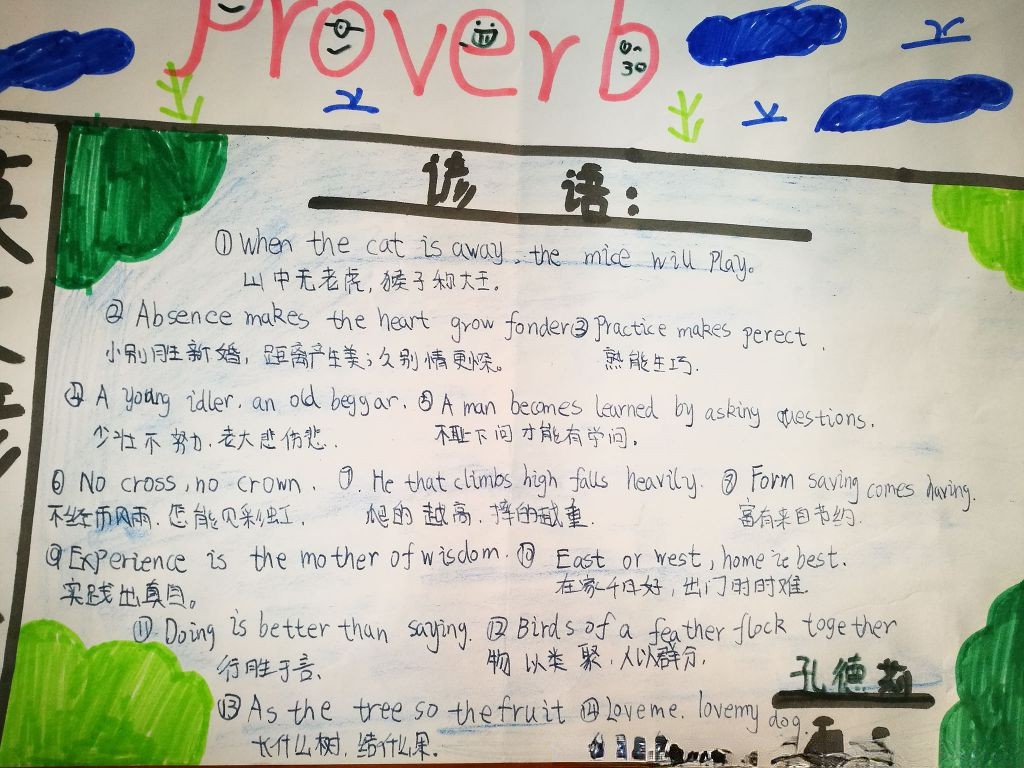 Proverb
谚语：
① When the cat is away, the mice will play。
山中无老虎，猴子称大王。
② Absence makes the heart grow fonder ③ Practice makes perect.
小别胜新婚，距离产生美；久别情更深。 熟能生巧.
④ A young idler. an old beggar. ⑤ A man becomes learned by asking questions.
少壮不努力，老大悲伤悲. 不耻下问才能有学问.
⑥ No cross, no crown. ⑦. He that climbs high falls heavily. ⑧ Form saving comes having.
不经历风雨，怎能见彩虹. 爬的越高，摔的越重. 富有来自节约.
⑨ Experience is the mother of wisdom. ⑩ East or west, home is best.
实践出真 在家千日好，出门时时难.
⑪ Doing is better than saying. ⑫ Birds of a feather flock together
行胜于言、 物以类聚，人以群分.
孔德莉
⑬ As the tree so the fruit ⑭ Love me. love my dog.
长什么树，结什么果。
英